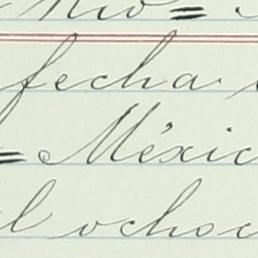 Rio=
fecha
=Méxic
l ochoc